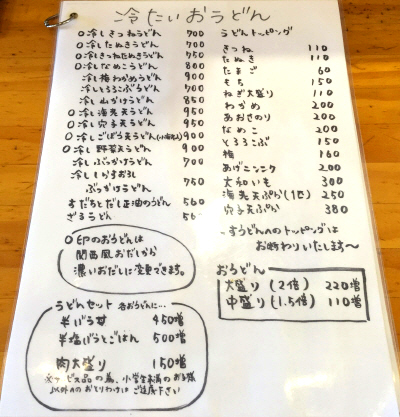 冷たいおうどん
○冷しきつねうどん 700
○冷したぬきうどん 700
○冷しきつねたぬきうどん 750
○冷しなめこうどん 800
冷し梅わかめうどん 900
冷しとろろこぶうどん 700
冷し山かけうどん 850
○冷し海老天うどん 950
○冷し穴子天うどん 950
○冷しごぼう天うどん 900
○冷し野菜天うどん 900
冷しぶっかけうどん 700
冷ししらすおろし
ぶっかけうどん 750
すだちとだし正油のうどん 560
ざるうどん
○印のおうどんは
関西風おだしから
濃いおだしに変更できます。
うどんセット 各おうどんに…
半バラ丼 450増
半塩ばうとごはん 500増
肉大盛り 150増
うどんトッピング
きつね 110
たぬき 110
たまご 60
もち 150
ねぎ大盛り 110
わかめ 200
あおさのり 200
なめこ 200
とろろこぶ 150
梅 160
あげニンニク 200
大和いも 300
海老天ぷら(1匹) 250
穴子天ぷら 380
~すうどんへのトッピングは
お断わりいたします~
おうどん
大盛り(2倍) 220増
中盛り(1.5倍) 110増